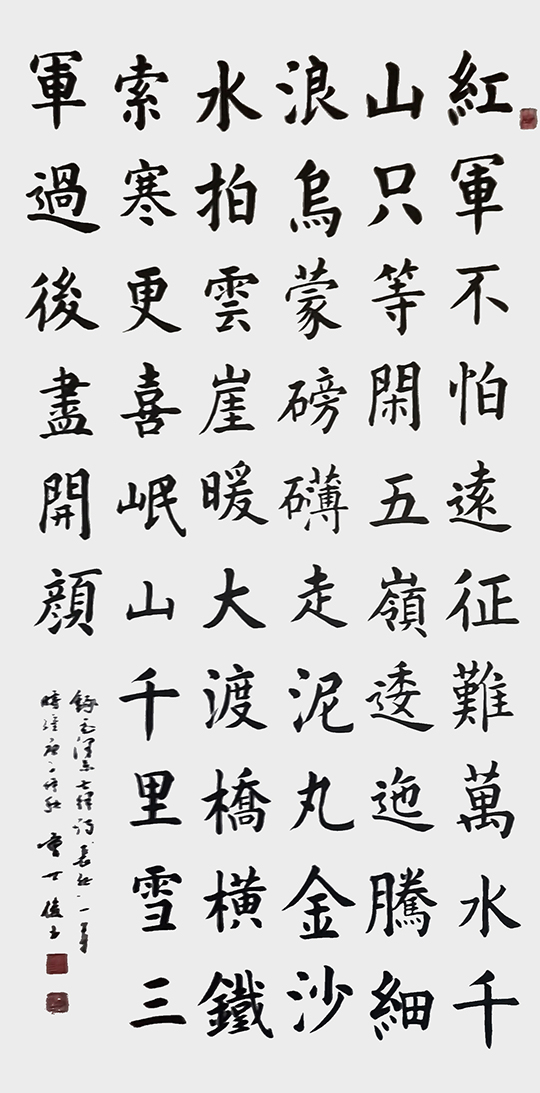 紅軍不怕遠征難萬水千
山只等閑五嶺逶迤騰細
浪烏蒙磅礴走泥丸金沙
水拍雲崖暖大渡橋橫鐵
索寒更喜岷山千里雪三
軍過後盡開顏
錄毛澤東七律詩長征一首
時維庚子仲秋